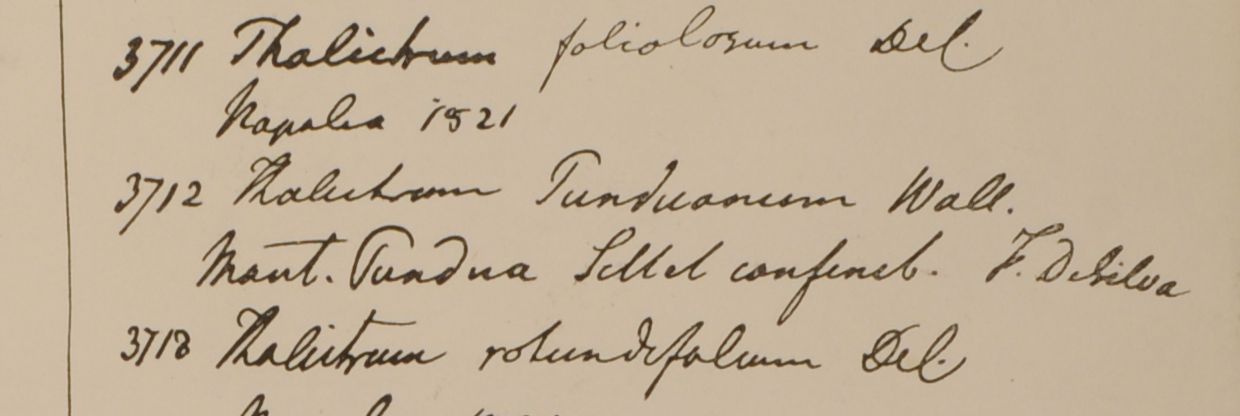 3711 Thalictrum foliolosum Del.
Napalia 1821
3712 Thalictrum Punduanum Wall.
Mont. Pundua Sillet confineb. F. De Silva
3713 Thalictrum rotundifolium Del.